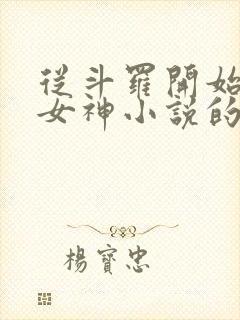 從斗羅開始
女神小說的
楊寶忠